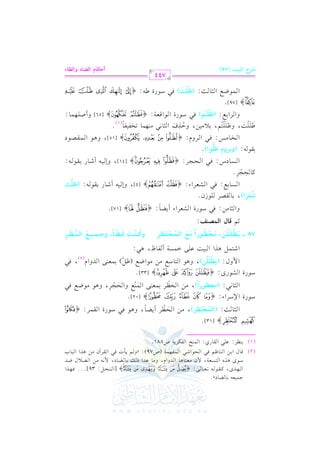 شرح البيت (٥٧)
أحكام الضاد والظاء
٤٤٧
الموضع الثالث: (ظَلْتَ) في سورة طه: ﴿إِلَىٰ إِلَٰهِكَ ٱلَّذِي ظَلْتَ عَلَيْهِ
عَاكِفًا﴾ [٩٧].
والرابع: (ظَلْتُمْ) في سورة الواقعة: ﴿فَظَلْتُمْ تَفَكَّهُونَ﴾ [٦٥] وأصلهما:
ظَلِلْتَ، وظَلِلْتُمْ، بلامين، وحُذِفَ الثاني منهما تخفيفاً(١).
الخامس: في الروم: ﴿لَّظَلُّوا۟ مِنۢ بَعْدِهِۦ يَكْفُرُونَ﴾ [٥١]، وهو المقصود
بقوله: (وبرومٍ ظَلُّوا).
السادس: في الحجر: ﴿فَظَلُّوا۟ فِيهِ يَعْرُجُونَ﴾ [١٤]، وإليه أشار بقوله:
كالحِجْر.
السابع: في الشعراء: ﴿فَظَلَّتْ أَعْنَٰقُهُمْ﴾ [٤]، وإليه أشار بقوله: (ظَلَّتْ
شُعَرَا)، بالقصر للوزن.
والثامن: في سورة الشعراء أيضاً: ﴿فَنَظَلُّ لَهَا﴾ [٧١].
ثم قال المصنف:
٥٧ ـ يَظْلَلْنَ، مَحْظُوراً مَعَ المُحْتَظِرِ وَكُنْتَ فَظّاً، وَجَمِيعِ النَّظَرِ
اشتمل هذا البيت على خمسة ألفاظ، هي:
الأول: (يَظْلَلْنَ)، وهو التاسع من مواضع (ظلَّ) بمعنى الدوام(٢)، في
سورة الشورى: ﴿فَيَظْلَلْنَ رَوَاكِدَ عَلَىٰ ظَهْرِهِۦٓ﴾ [٣٣].
الثاني: (محظوراً)، من الحَظْر بمعنى المَنْع والحَجْر، وهو موضع في
سورة الإسراء: ﴿وَمَا كَانَ عَطَآءُ رَبِّكَ مَحْظُورًا﴾ [٢٠].
الثالث: (المحتظِر)، من الحَظْر أيضاً، وهو في سورة القمر: ﴿فَكَانُوا۟
كَهَشِيمِ ٱلْمُحْتَظِرِ﴾ [٣١].
(١) ينظر: علي القاري: المنح الفكرية ص١٨٨.
(٢) قال ابن الناظم في الحواشي المفهمة (ص٩٧): «ولم يأت في القرآن من هذا الباب
سوى هذه التسعة، لأن معناها الدوام، وما عدا ذلك بالضاد، لأنه من الضلال ضد
الهدى، كقوله تعالى: ﴿يُضِلُّ مَن يَشَآءُ وَيَهْدِى مَن يَشَآءُ﴾ [النحل: ٩٣]... فهذا
جميعه بالضاد».